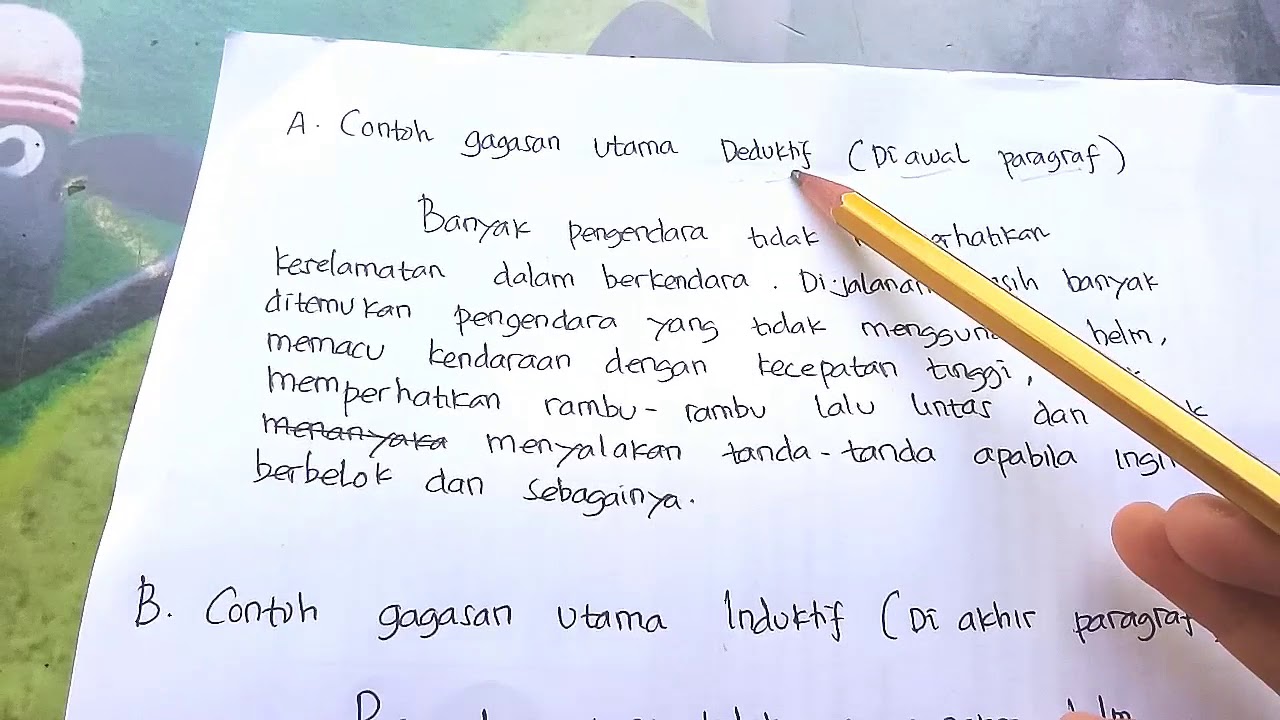 A. Contoh gagasan utama Deduktif (Di awal paragraf)
Banyak pengendara tidak
keselamatan dalam berkendara. Dijalanan banyak
ditemukan pengendara yang tidak helm,
memacu kendaraan dengan kecepatan tinggi,
memperhatikan rambu-rambu lalu lintas dan
menanyaka menyalakan tanda-tanda apabila
berbelok dan sebagainya.
B. Contoh gagasan utama Induktif (Di akhir paragraf